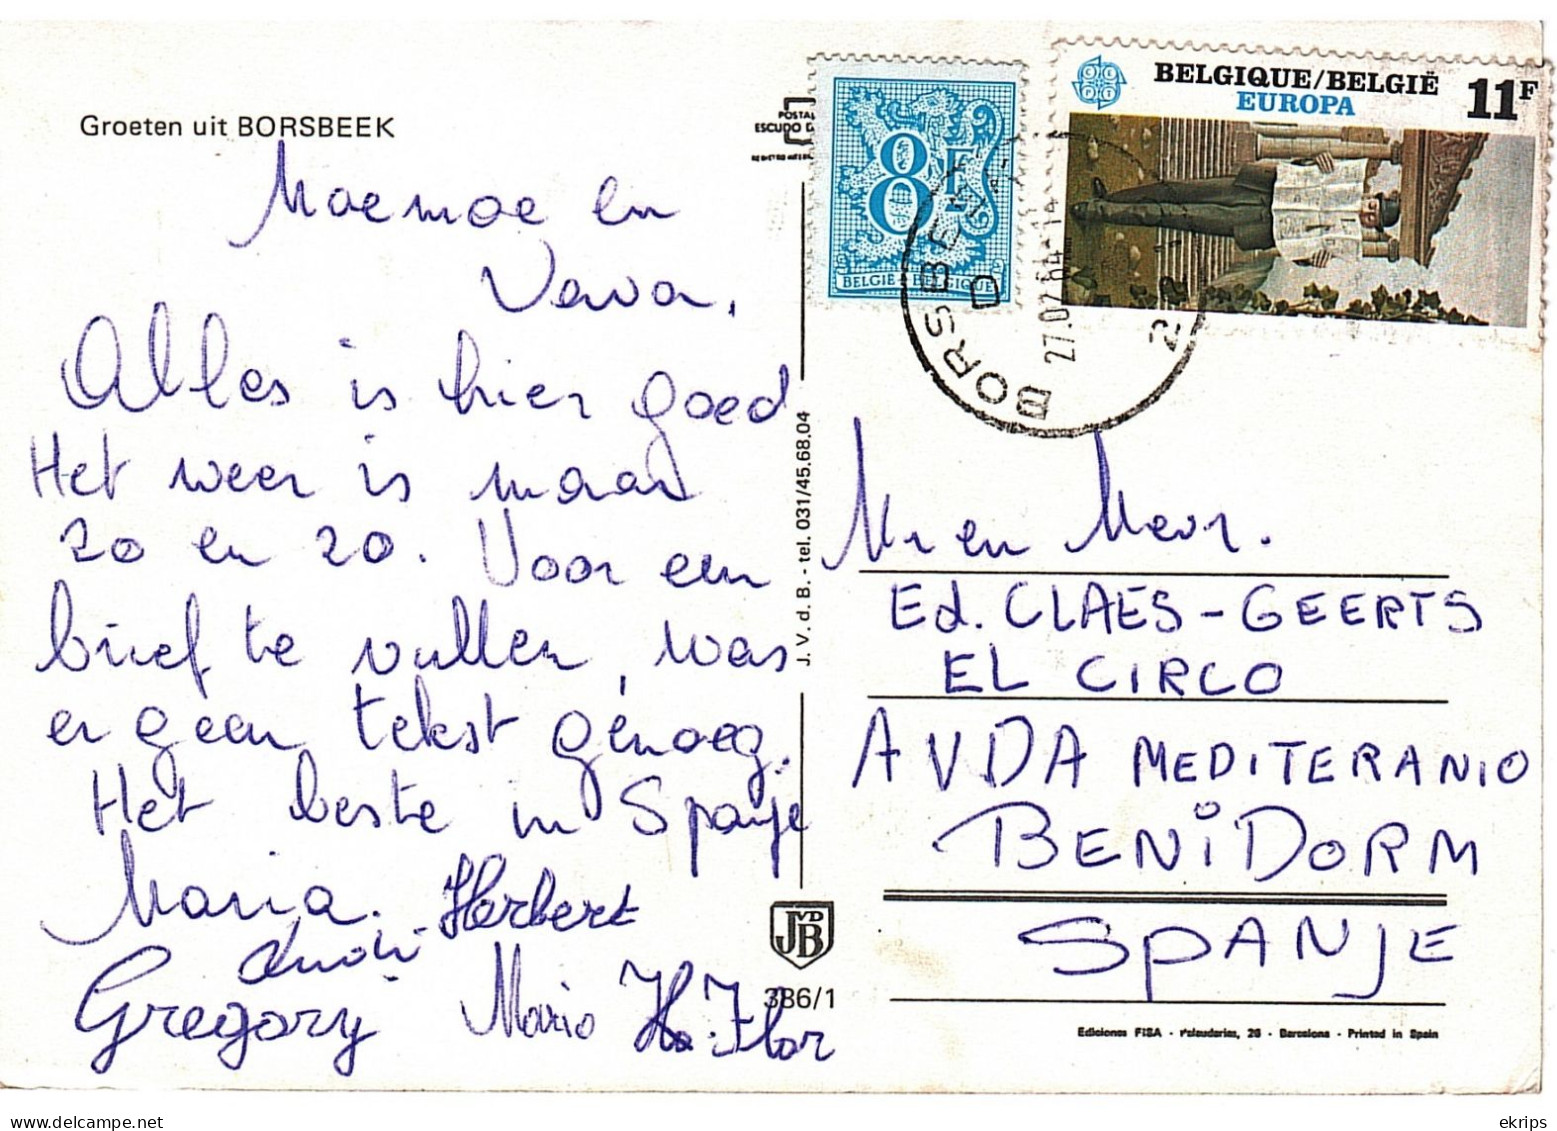 Groeten uit BORSBEEK
Moemoe en
Vava,
Alles is hier goed
Het weer is maar
zo en zo. Voor een
brief te vullen, was
er geen tekst genoeg.
Het beste in Spanje
Maria. Herbert
Gregory Mario
J. V. d. B. - tel. 031/45.68.04
JVDB
386/1
POSTAL
ESCUDO D
8F
BELGIË BELGIQUE
BELGIQUE/BELGIË
EUROPA
11F
CEPT
BORSBEEK
D
27.07.84-14
Mr en Mevr.
Ed. CLAES-GEERTS
EL CIRCO
AVDA MEDITERANIO
BENIDORM
SPANJE
Ediciones FISA - Palaudarias, 26 - Barcelona - Printed in Spain
ekrips